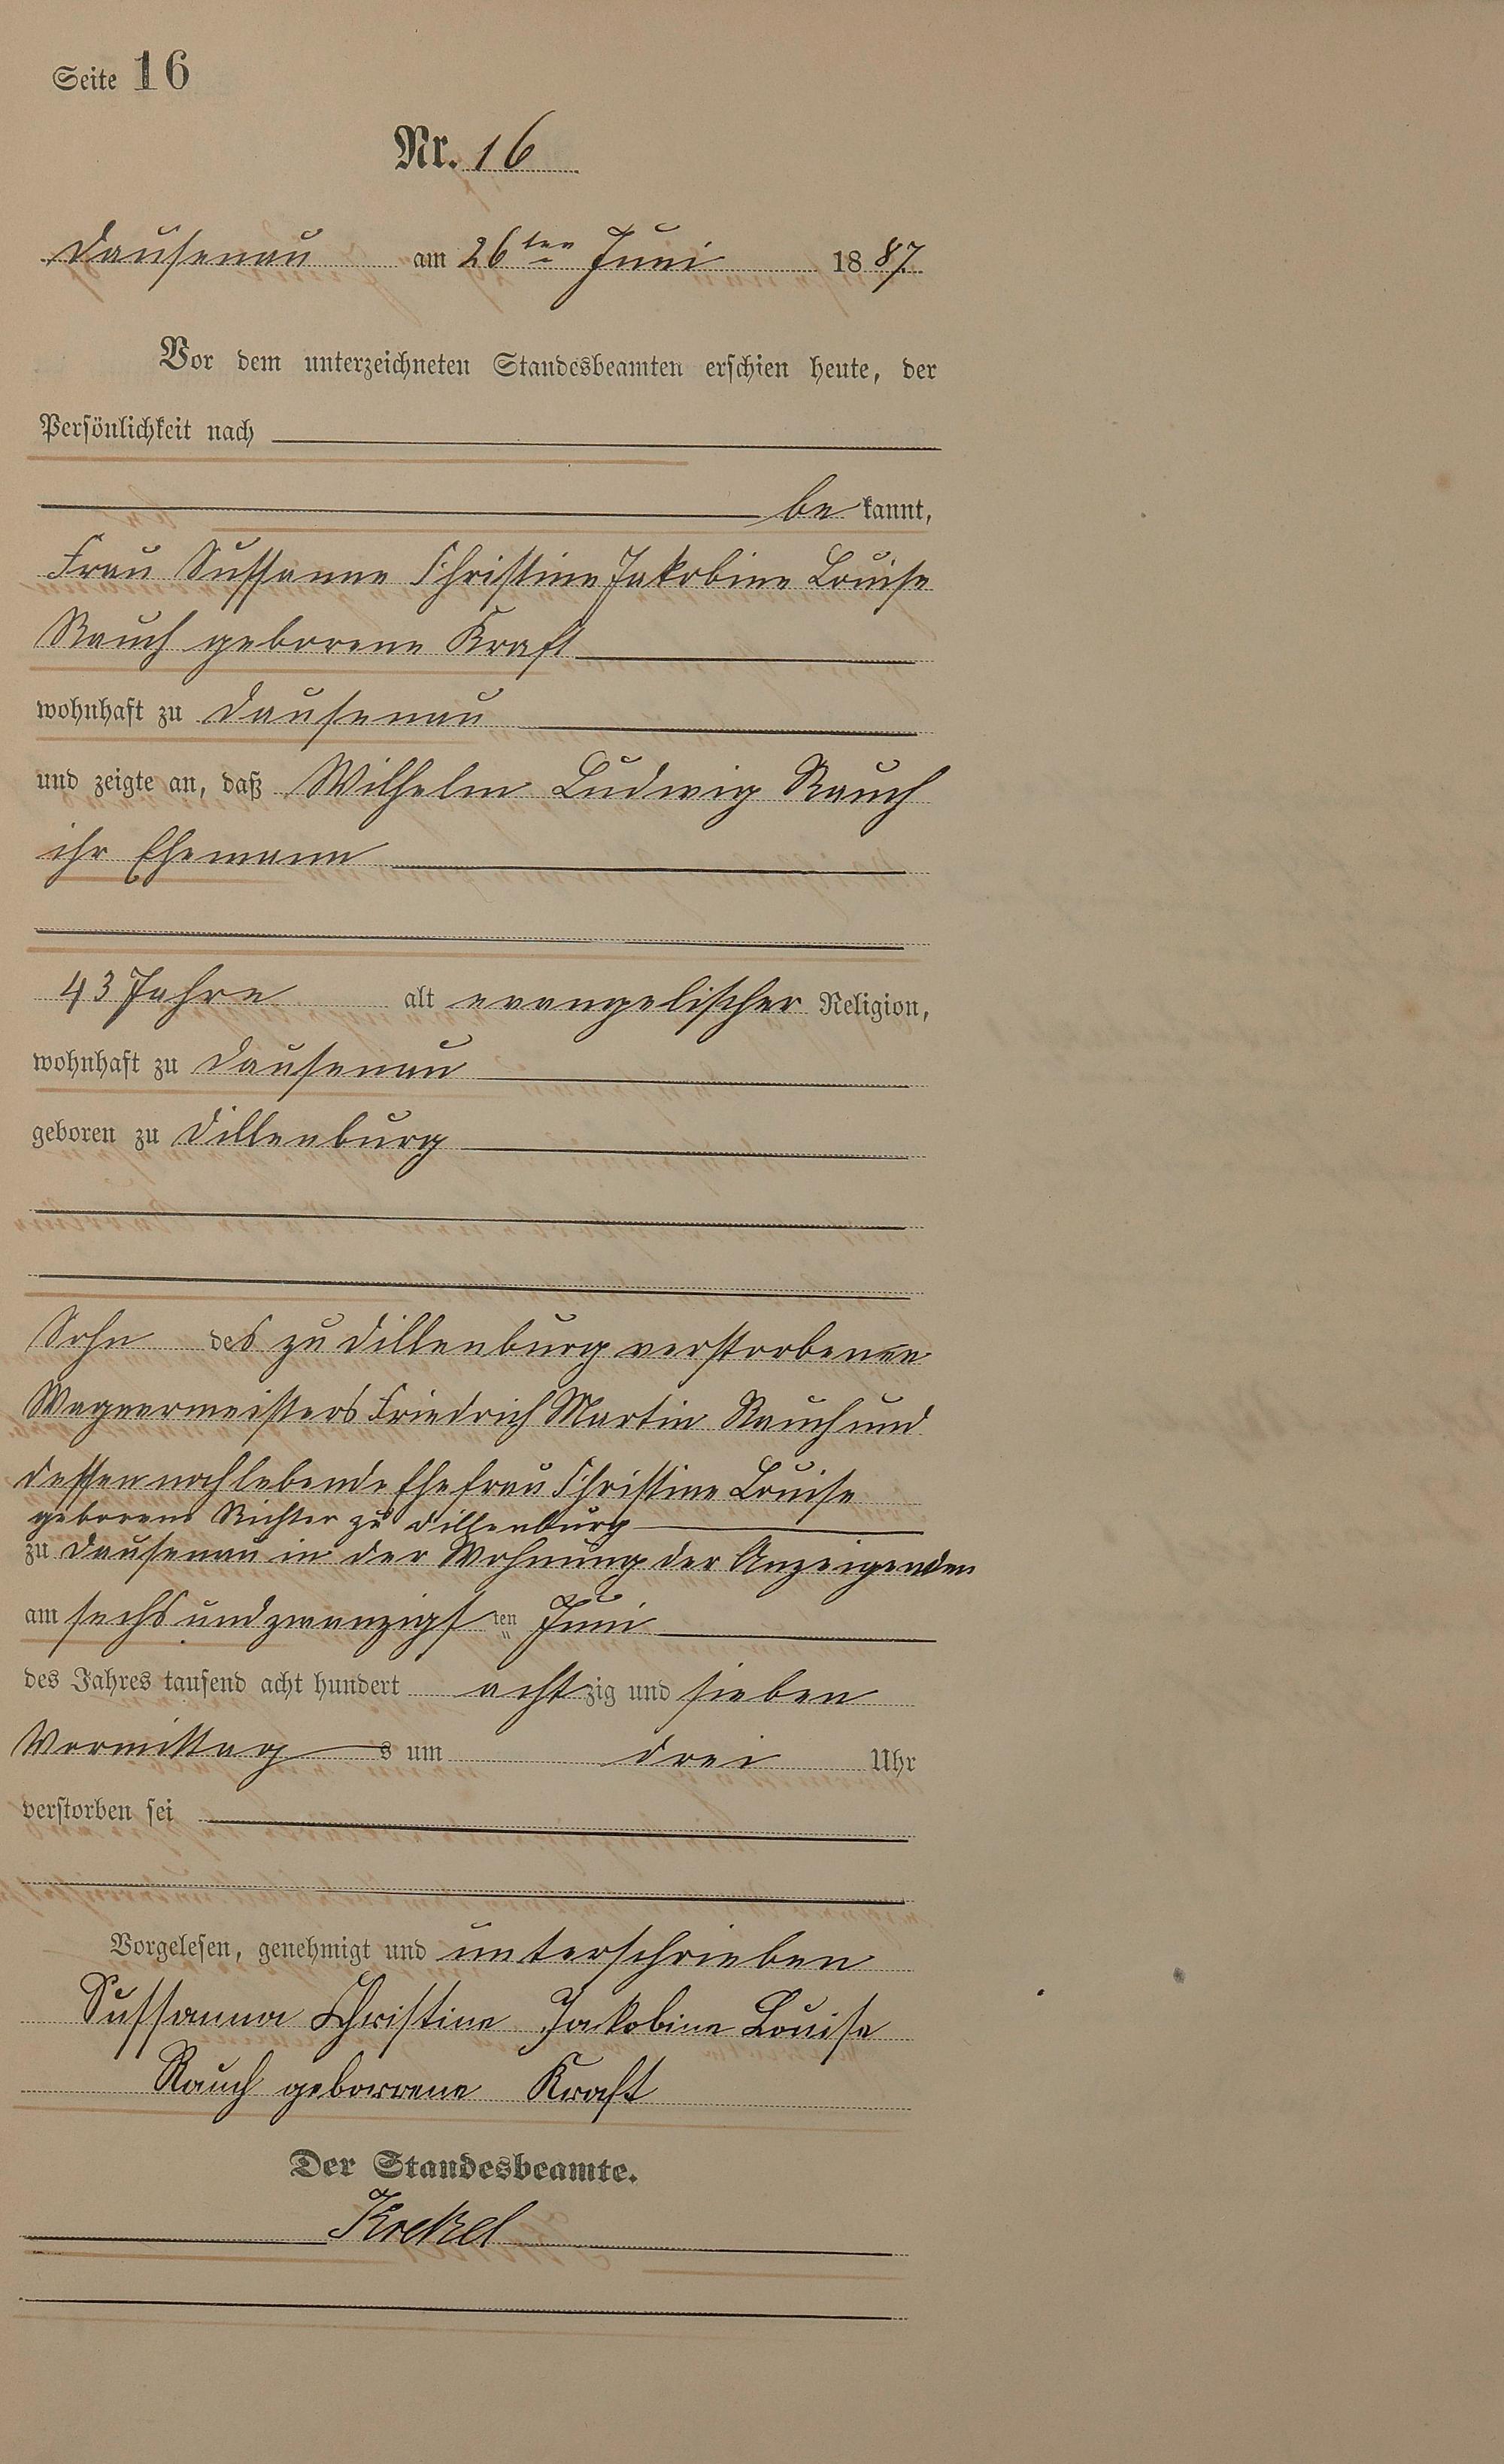 Seite 16
Nr. 16
Dausenau am 26ten Juni 1887.
Vor dem unterzeichneten Standesbeamten erschien heute, der
Persönlichkeit nach
be kannt,
Frau Sussanne Christine Jakobine Louise
Rauch geborene Kraft
wohnhaft zu Dausenau
und zeigte an, daß Wilhelm Ludwig Rauch
ihr Ehemann
43 Jahre alt evangelischer Religion,
wohnhaft zu Dausenau
geboren zu Dillenburg
Sohn des zu Dillenburg verstorbenen
Wagnermeisters Friedrich Martin Rauch und
dessen noch lebende Ehefrau Christine Louise
geborene Richter zu Dillenburg
zu Dausenau in der Wohnung der Anzeigenden
am sechs und zwanzigsten Juni
des Jahres tausend acht hundert achtzig und sieben
Vormittags um drei Uhr
verstorben sei
Vorgelesen, genehmigt und unterschrieben
Sussanna Christine Jackobine Louise
Rauch geborrene Kraft
Der Standesbeamte.
Krekel